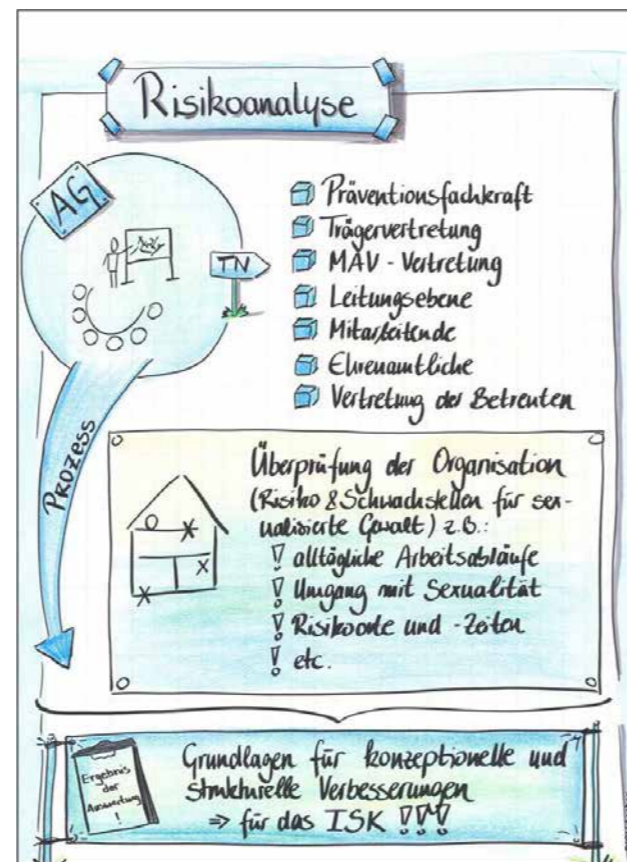 Risikoanalyse
AG
TN
Präventionsfachkraft
Trägervertretung
MAV - Vertretung
Leitungsebene
Mitarbeitende
Ehrenamtliche
Vertretung der Betreuten
Prozess
Überprüfung der Organisation
(Risiko & Schwachstellen für sex-
ualisierte Gewalt) z.B.:
! alltägliche Arbeitsabläufe
! Umgang mit Sexualität
! Risikoorte und -Zeiten
! etc.
Ergebnis
der
Auswertung
!
Grundlagen für konzeptionelle und
strukturelle Verbesserungen
⇒ für das ISK !!!